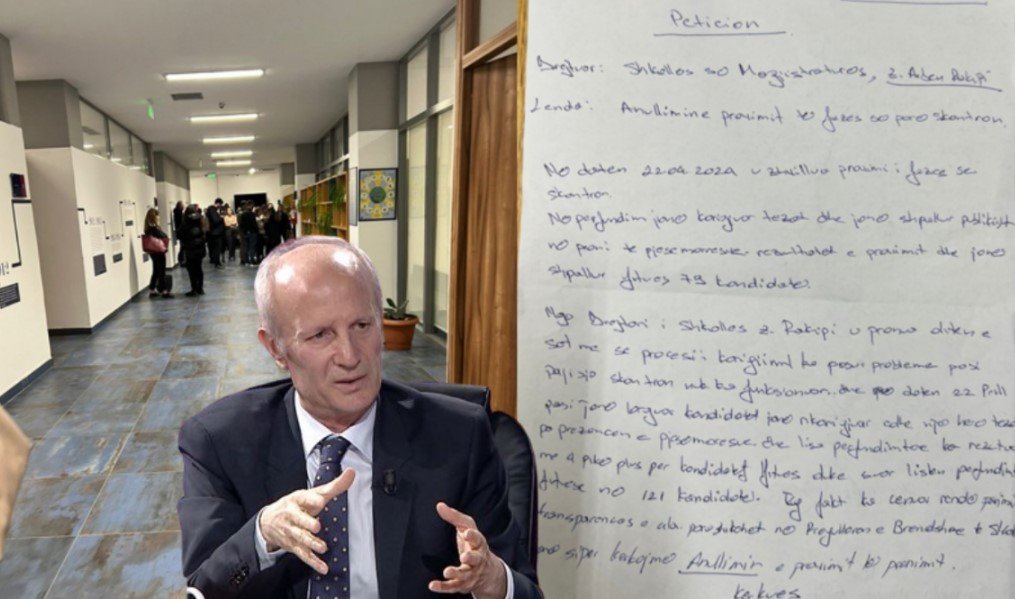 Peticion
Drejtuar: Shkolles se Magjistratures, z. Arben Rakipi
Lenda: Anullimin e provimit te fazes se pare skantron.
Ne daten 22.04.2024 u zhvillua provimi i fazes se
skantron.
Ne perfundim jane korigjuar tezat dhe jane shpallur publikisht
ne prani te pjesemaresve rezultatet e provimit dhe jane
shpallur fitues 79 kandidate.
Nga Drejtori i Shkolles z. Rakipi u pranua diten e
sotme se procesi i korigjimit ka pasur probleme pasi
pajisja skantron nuk ka funksionuar dhe ne daten 22 Prill
pasi jane larguar kandidatet jane rikorigjuar edhe nje here tezat
pa prezencen e pjesemaresve dhe lista perfundimtare ka rezultu
me 4 pike plus per kandidatet fitues duke cuar listen perfundim
fituese ne 121 kandidate. Ky fakt ka cenuar rende parimin
transparences e cila parashikohet ne Rregulloren e Brendshme te Shk
sa me siper kerkojme Anullimin e provimit te pranimit.
Kerkues